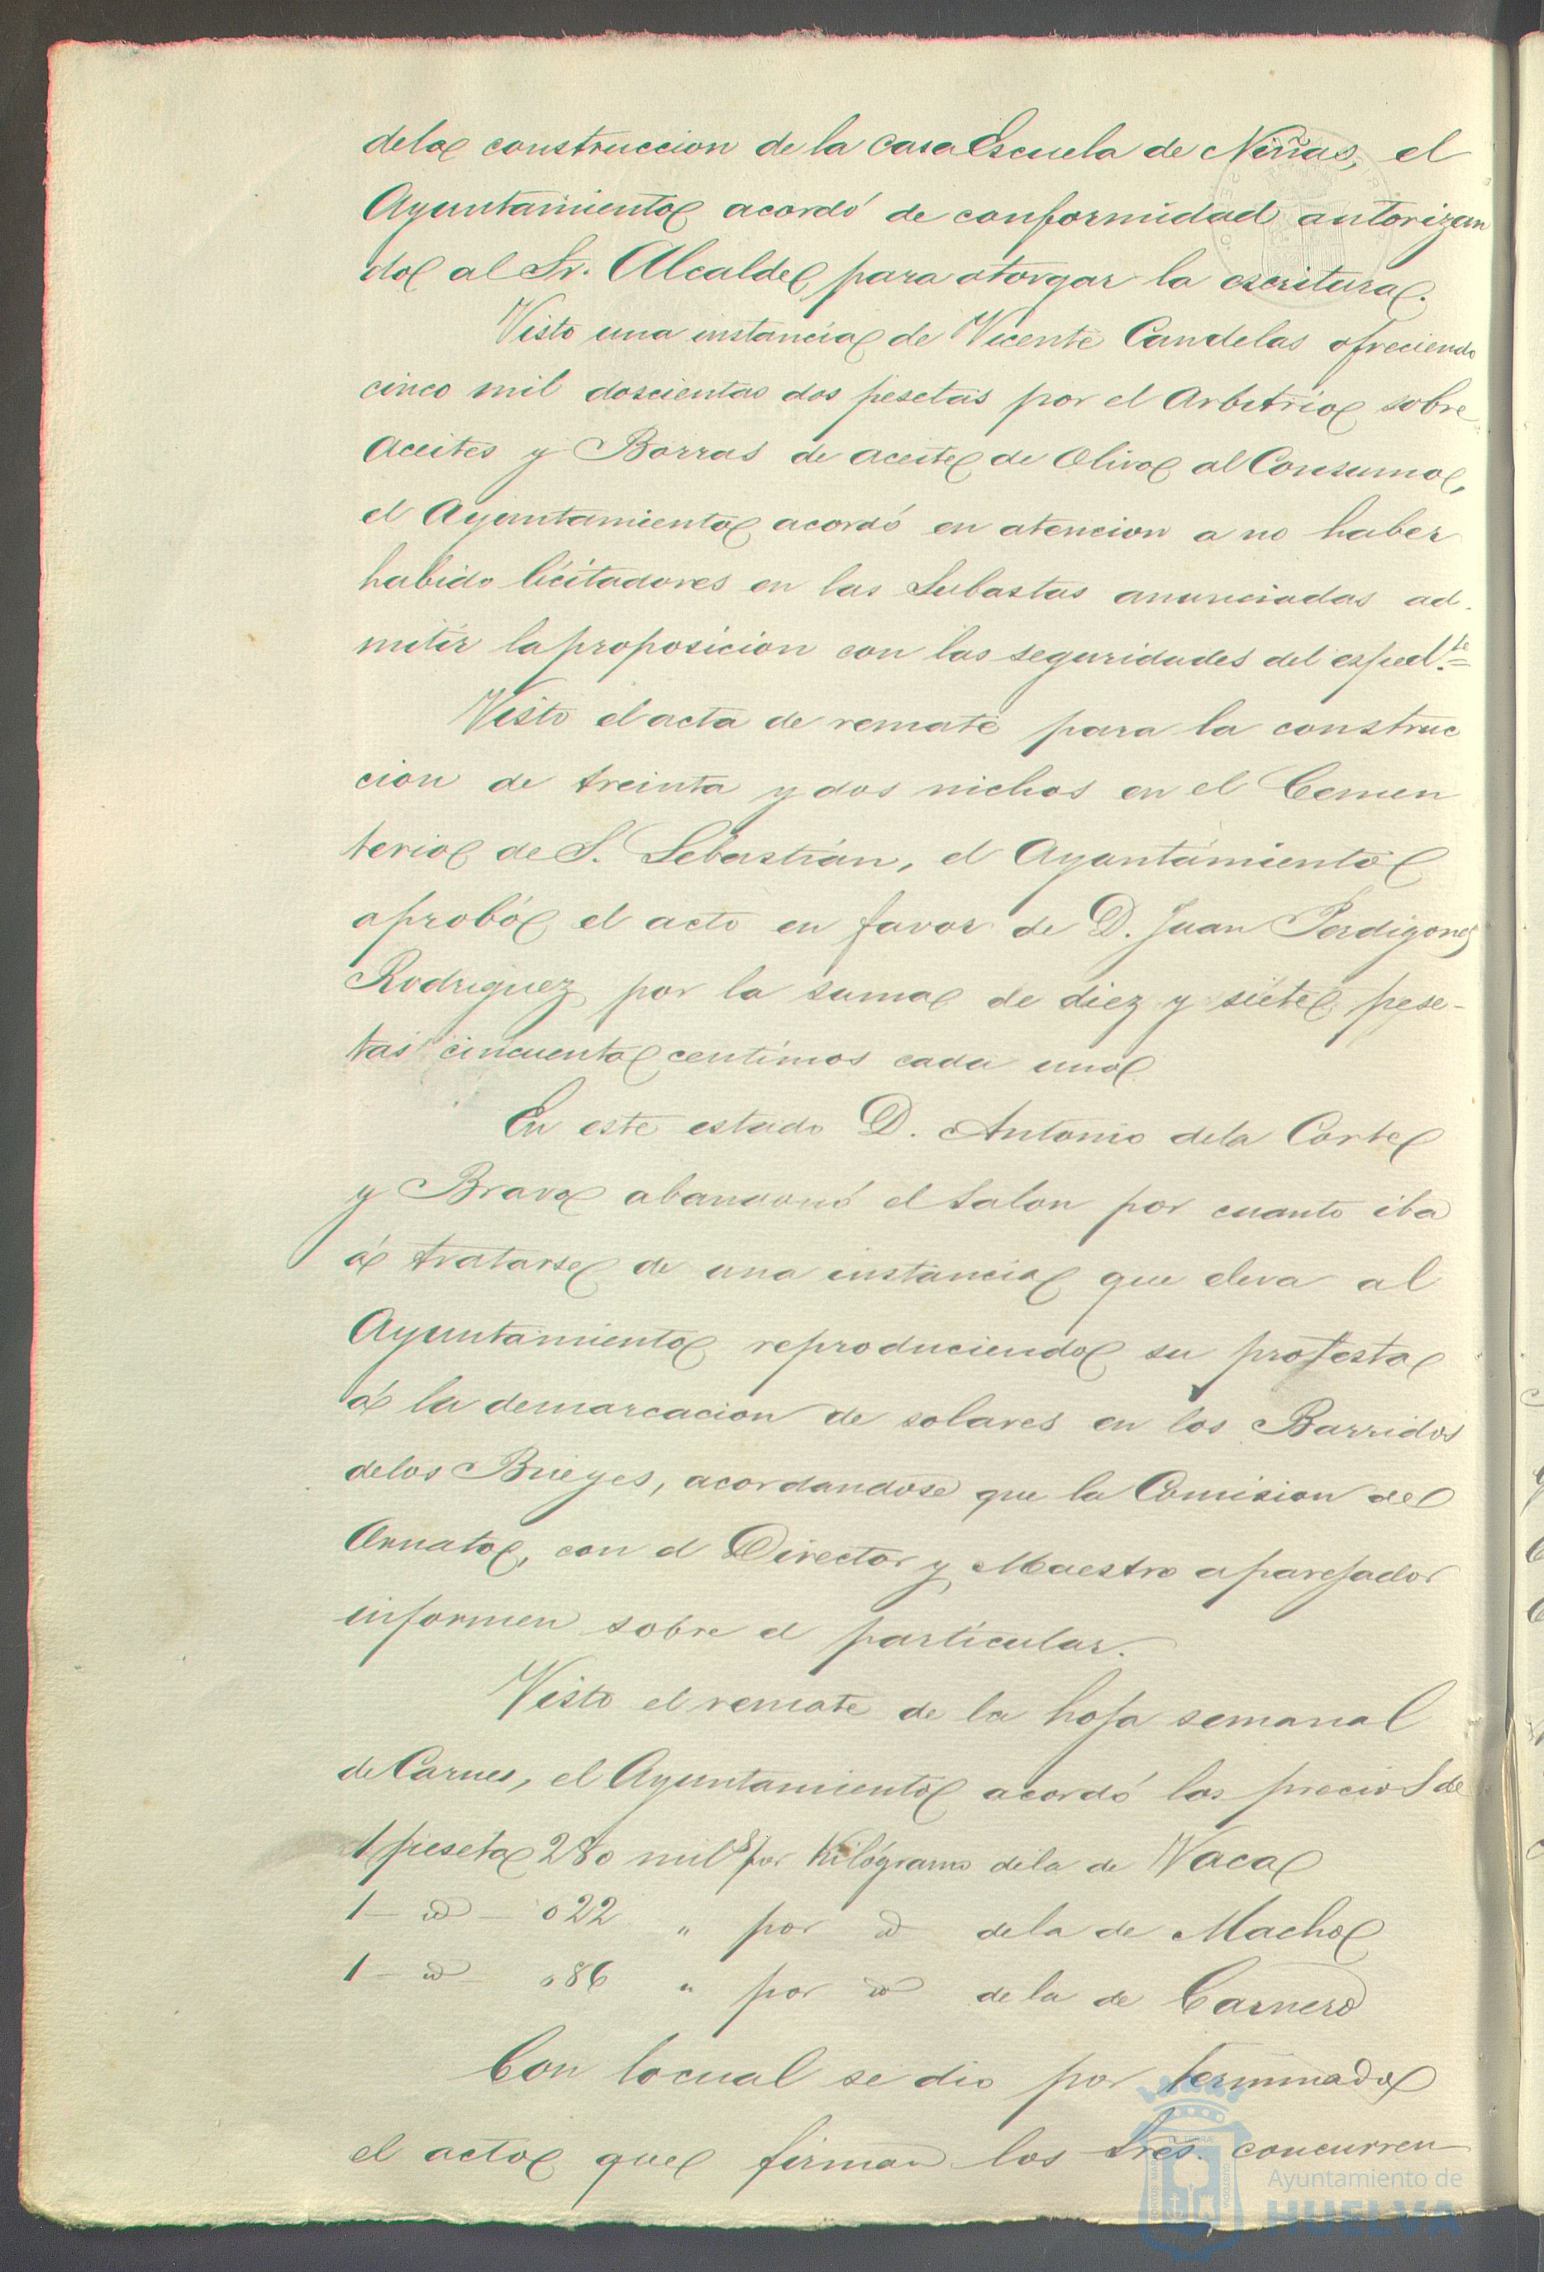 dela construccion de la casa Escuela de Niñas, el
Ayuntamiento acordó de conformidad autorizan
do al Sr. Alcalde para otorgar la escritura.
Visto una instancia de Vicente Candelas ofreciendo
cinco mil doscientas dos pesetas por el Arbitrio sobre
Aceites y Borras de aceite de Olivo al Consumo,
el Ayuntamiento acordó en atencion a no haber
habido licitadores en las Subastas anunciadas ad-
mitir la proposicion con las seguridades del espedte.
Visto el acta de remate para la construc
cion de treinta y dos nichos en el Cemen
terio de S. Sebastián, el Ayuntamiento
aprobó el acto en favor de D. Juan Perdigones
Rodriguez por la suma de diez y siete pese-
tas cincuenta centimos cada uno
En este estado D. Antonio dela Corte
y Bravo abandonó el Salon por cuanto iba
á tratarse de una instancia que eleva al
Ayuntamiento reproduciendo su protesta
á la demarcacion de solares en los Barridos
delos Bueyes, acordandose que la Comision de
Ornato, con el Director y Maestro aparejador
informen sobre el particular.
Visto el remate de la hoja semanal
de Carnes, el Ayuntamiento acordó los precios de
1 peseta 280 mils por Kilógramo dela de Vaca
1 - id - 022 " por id dela de Macho
1 - id - 086 " por id de la de Carnero
Con lo cual se dio por terminado
el acto que firman los Sres. concurren
Ayuntamiento de
HUELVA